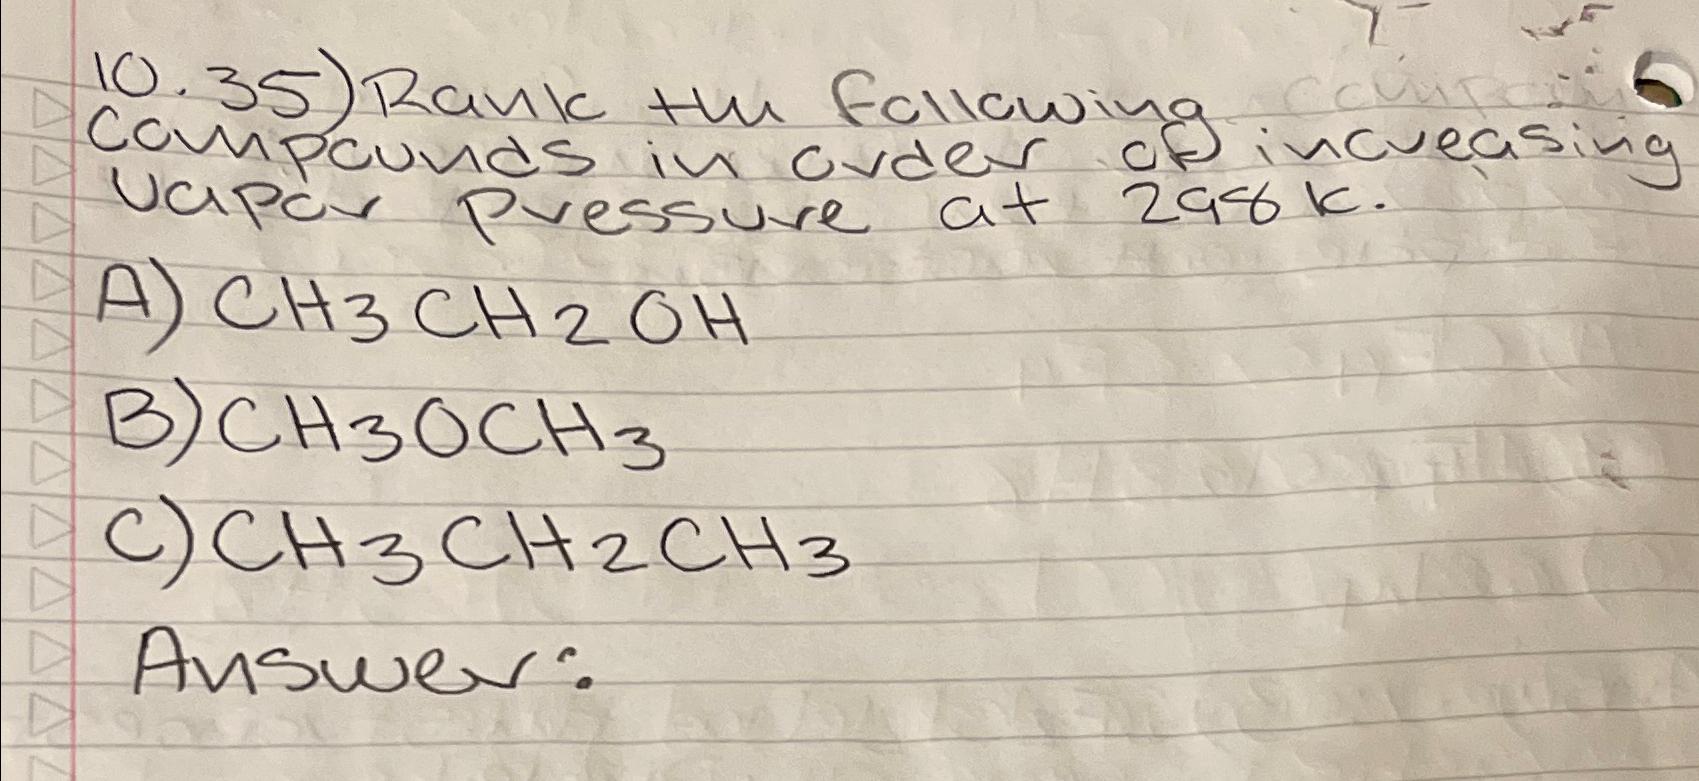 10.35) Rank the following
compounds in order of increasing
vapor pressure at 298 K.
A) CH3CH2OH
B) CH3OCH3
C) CH3CH2CH3
Answer: